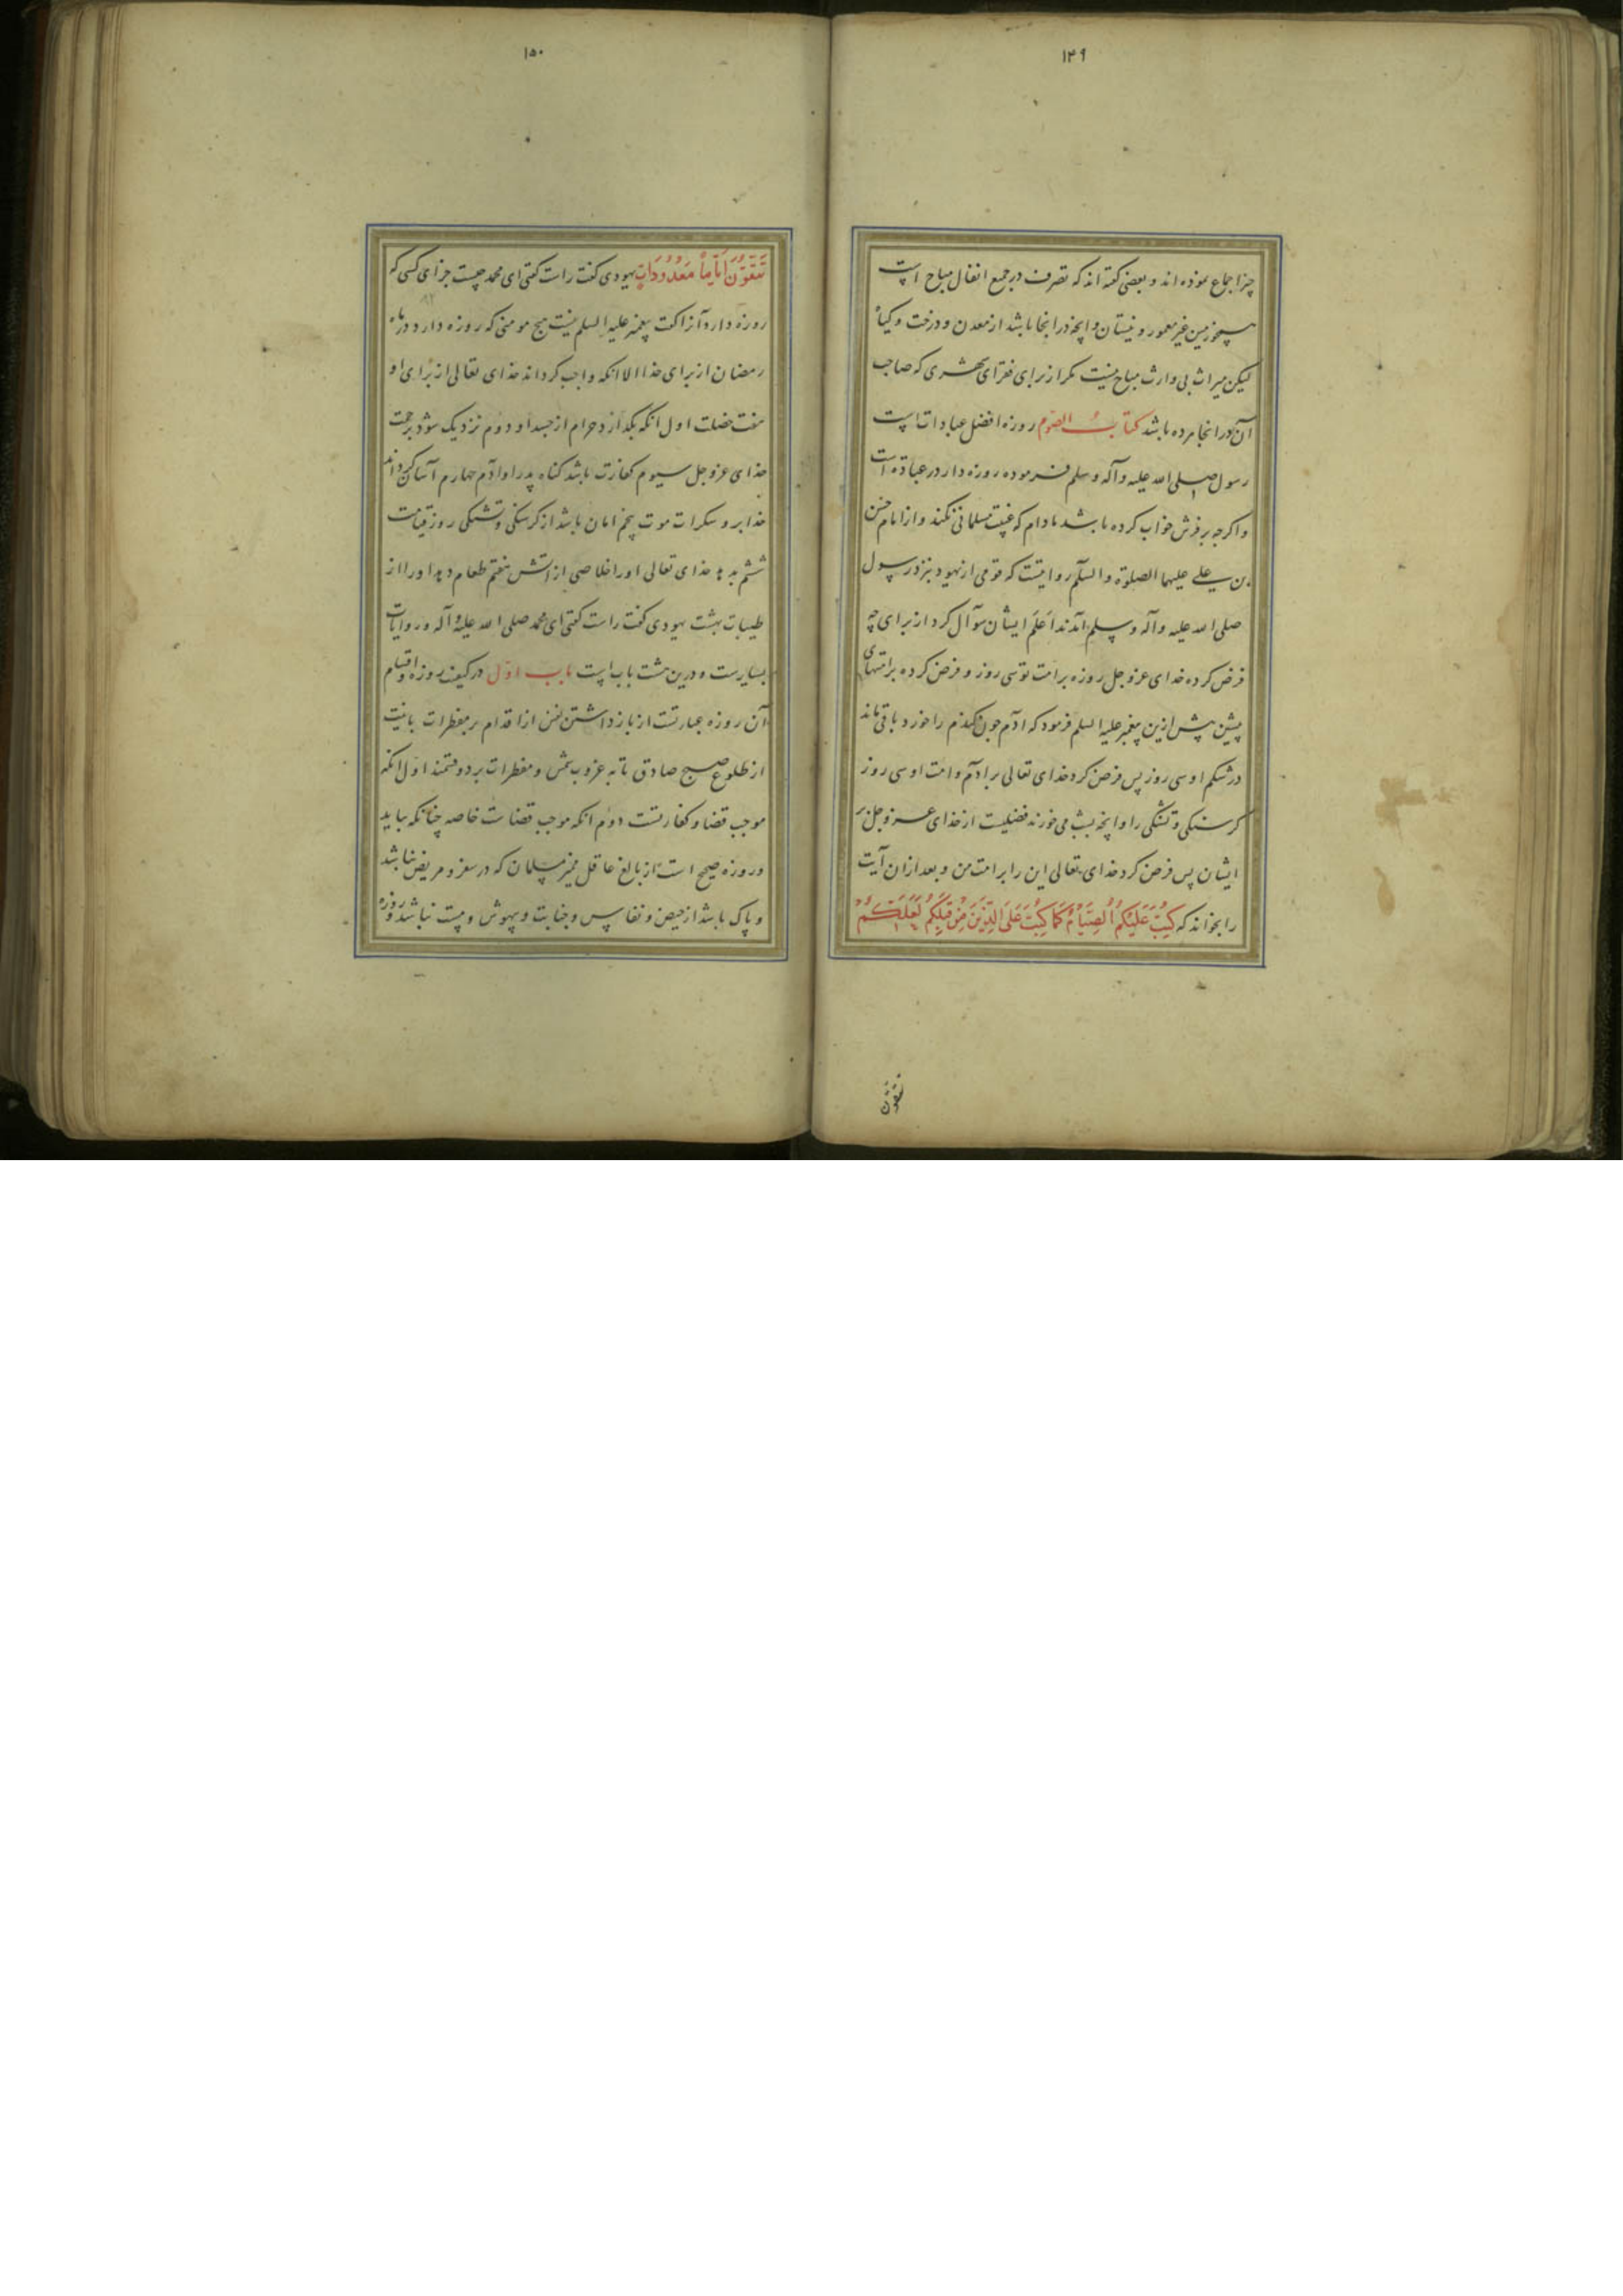 ۱۴۹
چیز اجماع نموده‌اند و بعضی گفته‌اند که تصرف در جمیع انفال مباح است
همچو زمین غیر معمور و نیستان و انچه در انجا باشد از معدن و درخت و گیاه
لیکن میراث بی وارث مباح نیست مگر از برای فقرای شهری که صاحب
آن در انجا مرده باشد کتاب الصوم روزه افضل عبادات است
رسول صلی الله علیه وآله وسلم فرموده روزه دار در عبادة است
و اگرچه بر فرش خواب کرده باشد مادام که غیبت مسلمانی نکند و از امام حسن
بن علی علیهما الصلوة والسلم روایتست که قومی از یهود بنزد رسول
صلی الله علیه وآله وسلم آمدند اعلم ایشان سوآل کرد از برای چه
فرض کرده خدای عزوجل روزه بر امت تو سی روز و فرض کرده بر امتهای
پیشین پیش ازین پیغمبر علیه السلم فرمود که ادم چون گندم را خورد باقی ماند
در شکم او سی روز پس فرض کرد خدای تعالی بر ادم و امت او سی روز
گرسنگی و تشنگی را و انچه بشب می‌خورند فضلیست از خدای عزوجل بر
ایشان پس فرض کرد خدای تعالی این را بر امت من و بعد ازان آیت
را بخواند که کُتِبَ عَلَیْکُمُ الصِّیَامُ کَمَا کُتِبَ عَلَی الَّذِینَ مِنْ قَبْلِکُمْ لَعَلَّکُمْ
تتقون
۱۵۰
تَتَّقُونَ اَیَّاماً مَعْدُودَاتٍ یهودی گفت راست گفتی ای محمد چیست جزای کسی که
روزه دارد آنرا گفت پیغمبر علیه السلم نیست هیچ مومنی که روزه دارد در ماه
رمضان از برای خدا الا انکه واجب کرداند خدای تعالی از برای او
هفت خصلت اول انکه بگدازد حرام از جسد او دوم نزدیک شود برحمت
خدای عزوجل سیوم کفارت باشد گناه پدر او ادم چهارم آسان گرداند
خدا برو سکرات موت پنجم امان باشد از گرسنگی و تشنگی روز قیامت
ششم بدهد خدای تعالی او را خلاصی از اتش هفتم طعام دهد او را از
طیبات بهشت یهودی گفت راست گفتی ای محمد صلی الله علیه وآله و روایات
بسیارست و درین هشت باب است باب اول در کیفیت روزه و اقسام
آن روزه عبارتست از باز داشتن نفس از اقدام بر مفطرات با نیت
از طلوع صبح صادق تا به غروب شمس و مفطرات بر دو قسمند اول انکه
موجب قضا و کفارتست دوم انکه موجب قضاست خاصه چنانکه بیاید
و روزه صحیح است از بالغ عاقل ممیز مسلمان که در سفر و مریض نباشد
و پاک باشد از حیض و نفاس و جنابت و بیهوش و مست نباشد و روزه